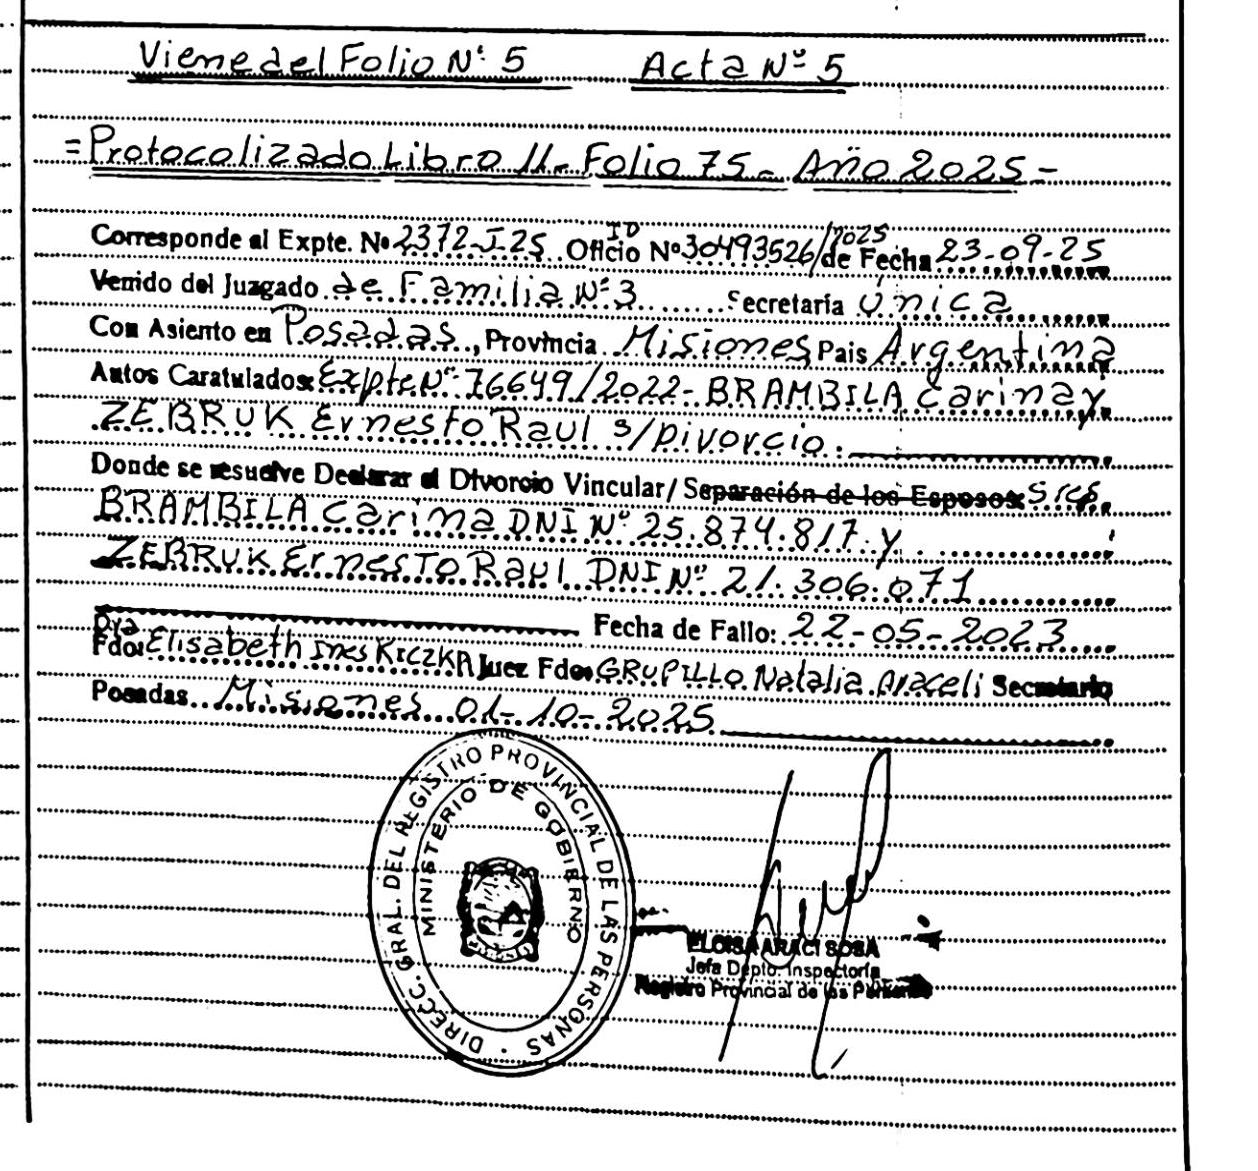 Viene del Folio Nº 5 Acta Nº 5
=Protocolizado Libro 11- Folio 75- Año 2025-
Corresponde al Expte. Nº 2372-I-25 Oficio ID Nº 30493526/2025 de Fecha 23-09-25
Venido del Juzgado de Familia Nº 3 Secretaría Única
Con Asiento en Posadas, Provincia Misiones País Argentina
Autos Caratulados: Expte Nº 76649/2022- BRAMBILA Carina y
ZEBRUK Ernesto Raul s/Divorcio.
Donde se resuelve Declarar el Divorcio Vincular/ Separación de los Esposos: Sres.
BRAMBILA Carina DNI Nº 25.874.817 y
ZEBRUK Ernesto Raul DNI Nº 21.306.071
Fecha de Fallo: 22-05-2023
Fdo: Dra Elisabeth Ines KICZKA Juez Fdo: GRUPILLO Natalia Araceli Secretario
Posadas Misiones 01-10-2025
DIRECC. GRAL. DEL REGISTRO PROVINCIAL DE LAS PERSONAS
MINISTERIO DE GOBIERNO
ELOISA ARACI SOSA
Jefa Depto. Inspectoría
Registro Provincial de las Personas